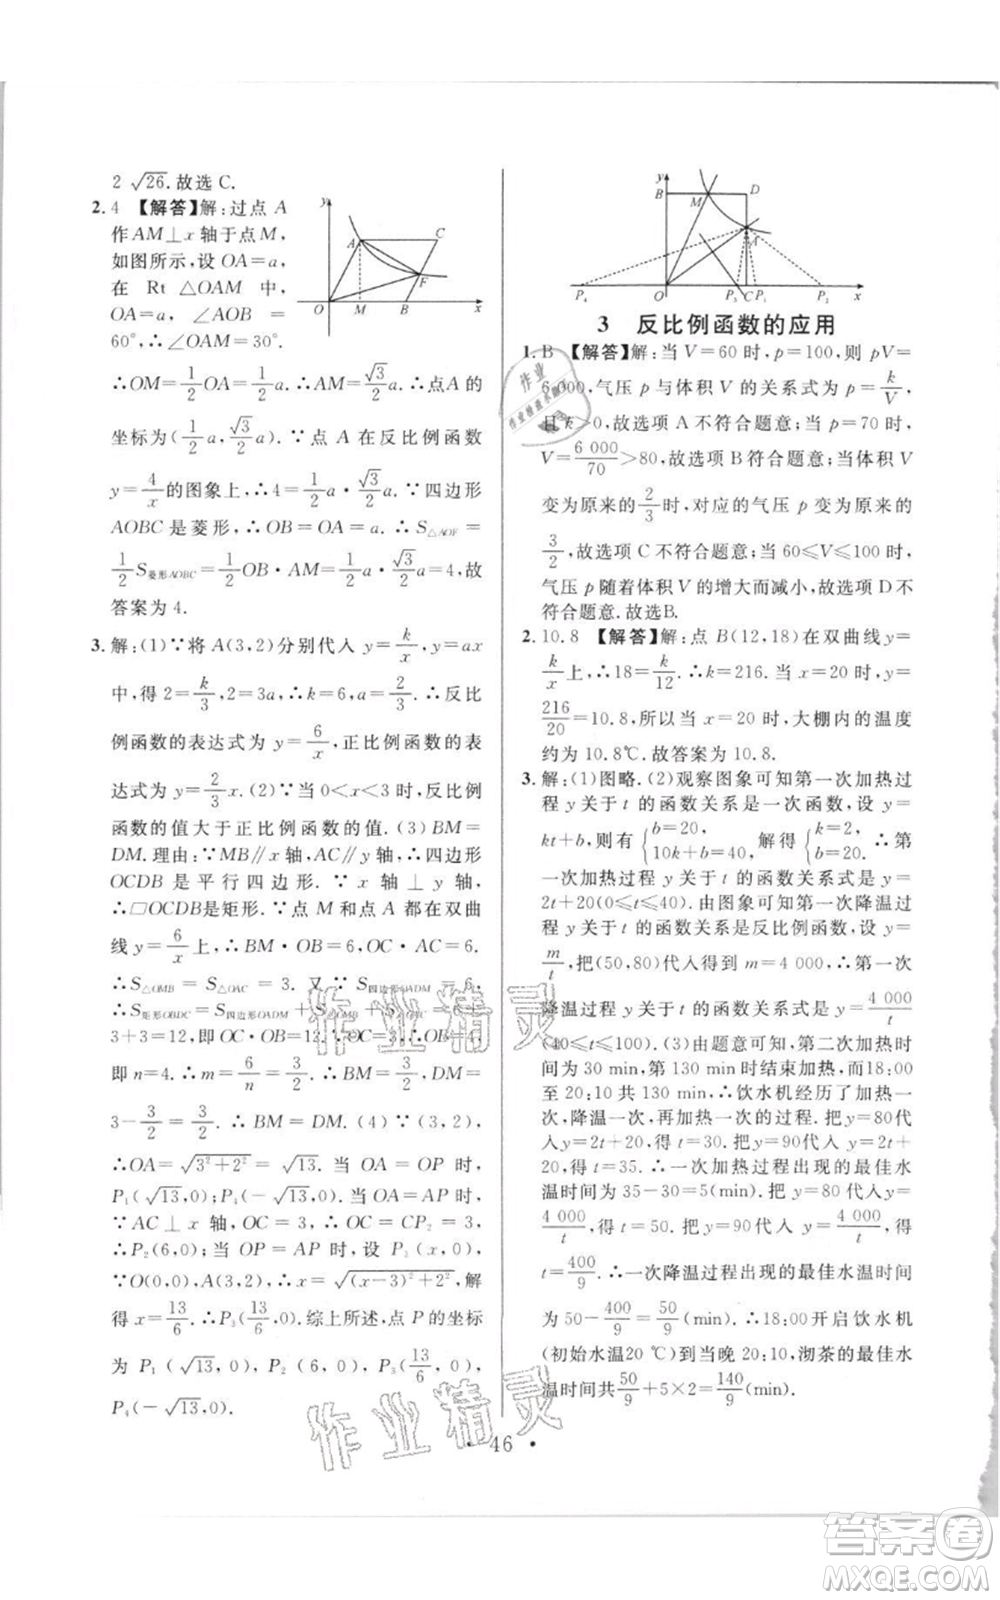 2 √26.故选C.
2. 4 【解答】解:过点 A
作 AM⊥x 轴于点 M,
如图所示,设 OA=a,
在 Rt △OAM 中,
OA=a, ∠AOB=
60°,∴∠OAM=30°.
∴OM=1/2 OA=1/2 a,AM=√3/2 a,∴点 A 的
坐标为(1/2 a, √3/2 a).∵点 A 在反比例函数
y=4/x 的图象上,∴4=1/2 a·√3/2 a.∵四边形
AOBC 是菱形,∴OB=OA=a.∴S△AOF=
1/2 S菱形AOBC=1/2 OB·AM=1/2 a·√3/2 a=4,故
答案为 4.
3. 解:(1)∵将 A(3,2)分别代入 y=k/x, y=ax
中,得 2=k/3,2=3a,∴k=6,a=2/3.∴反比
例函数的表达式为 y=6/x,正比例函数的表
达式为 y=2/3 x.(2)∵当 0<x<3 时,反比例
函数的值大于正比例函数的值.(3)BM=
DM.理由:∵MB∥x 轴,AC∥y 轴,∴四边形
OCDB 是平行四边形.∵x 轴⊥y 轴,
∴□OCDB是矩形.∵点 M 和点 A 都在双曲
线 y=6/x 上,∴BM·OB=6,OC·AC=6.
∴S△OMB=S△OAC=3. 又∵S四边形OADM=6,
∴S矩形OBDC=S四边形OADM+S△OMB+S△OAC=6+
3+3=12,即 OC·OB=12.∵OC=3,∴OB=4.
即 n=4.∴m=6/n=3/2.∴BM=3/2,DM=
3-3/2=3/2.∴BM=DM.(4)∵(3,2),
∴OA=√3²+2²=√13. 当 OA=OP 时,
P₁(√13,0);P₄(-√13,0).当 OA=AP 时,
∵AC⊥x 轴,OC=3,∴OC=CP₂=3,
∴P₂(6,0);当 OP=AP 时,设 P₃(x,0),
∵O(0,0),A(3,2),∴x=√(x-3)²+2²,解
得 x=13/6.∴P₃(13/6,0).综上所述,点 P的坐标
为 P₁(√13,0), P₂(6,0), P₃(13/6,0),
P₄(-√13,0).
y
A
C
F
O
M
B
x
y
B
M
D
A
P₄
O
P₃
C
P₁
P₂
x
3 反比例函数的应用
1. B 【解答】解:当 V=60 时,p=100,则 pV=
6 000,气压 p 与体积 V 的关系式为 p=k/V,
且 k>0,故选项 A 不符合题意;当 p=70 时,
V=6 000/70>80,故选项 B 符合题意;当体积 V
变为原来的 2/3 时,对应的气压 p 变为原来的
3/2,故选项 C 不符合题意;当 60≤V≤100 时,
气压 p 随着体积 V 的增大而减小,故选项 D不
符合题意.故选B.
2. 10.8 【解答】解:点 B(12,18)在双曲线y=
k/x 上,∴18=k/12.∴k=216.当 x=20 时,y=
216/20=10.8,所以当 x=20 时,大棚内的温度
约为 10.8℃.故答案为 10.8.
3. 解:(1)图略.(2)观察图象可知第一次加热过
程 y 关于 t 的函数关系是一次函数,设 y=
kt+b,则有{b=20, 10k+b=40, 解得{k=2, b=20. ∴第
一次加热过程 y 关于 t 的函数关系式是 y=
2t+20(0≤t≤40).由图象可知第一次降温过
程 y 关于 t 的函数关系是反比例函数,设 y=
m/t,把(50,80)代入得到 m=4 000,∴第一次
降温过程 y 关于 t 的函数关系式是y=4 000/t
(40≤t≤100).(3)由题意可知,第二次加热时
间为 30 min,第 130 min时结束加热,而18:00
至 20:10 共 130 min,∴饮水机经历了加热一
次,降温一次,再加热一次的过程,把 y=80代
入y=2t+20,得 t=30.把 y=90代入y=2t+
20,得 t=35.∴一次加热过程出现的最佳水
温时间为 35-30=5(min).把 y=80代入 y=
4 000/t,得 t=50.把 y=90代入 y=4 000/t, 得
t=400/9.∴一次降温过程出现的最佳水温时间
为 50-400/9=50/9(min).∴18:00开启饮水机
(初始水温20 ℃)到当晚 20:10,沏茶的最佳水
温时间共50/9+5×2=140/9(min).
· 46 ·
作业精灵
作业精灵
作业
答案卷
MXQE.COM